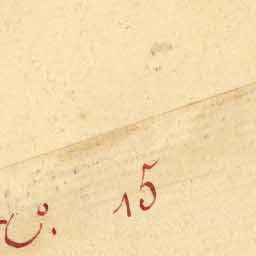 º. 15